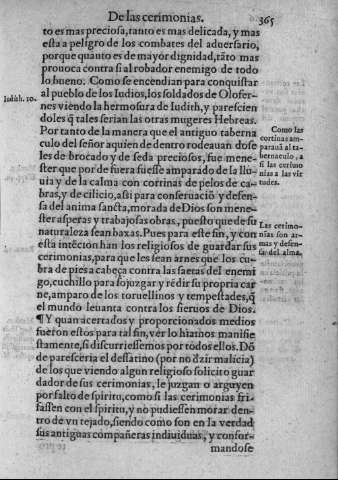 De las cerimonias. 365
to es mas preciosa, tanto es mas delicada, y mas
esta a peligro de los combates del aduersario,
porque quanto es de mayor dignidad, tãto mas
prouoca contra si al robador enemigo de todo
lo bueno. Como se encendian para conquistar
al pueblo de los Iudios, los soldados de Olofer-
Iudith. 10.
nes viendo la hermosura de Iudith, y paresciен
doles q̃ tales serian las otras mugeres Hebreas.
Por tanto de la manera que el antiguo taberna
culo del señor aquien de dentro rodeauan dose
les de brocado y de seda preciosos, fue mene-
ster que por de fuera fuesse amparado de la llu-
uia y de la calma con cortinas de pelos de ca-
bras, y de cilicio, assi para conseruaciõ y defen-
sa del anima sancta, morada de Dios son mene-
ster asperas y trabajosas obras, puesto que de su
naturaleza sean baxas. Pues para este fin, y con
esta intẽciõn han los religiosos de guardar sus
cerimonias, para que les sean arnes que los cu-
bra de pies a cabeça contra las saetas del enemi
go, cuchillo para sojuzgar y rẽdir su propria car
ne, amparo de los toruellinos y tempestades, q̃
el mundo leuanta contra los sieruos de Dios.
¶ Y quan acertados y proporcionados medios
fueron estos para tal fin, ver lo hiamos manifie
stamente, si discurriessemos por todos ellos. Dõ
de paresceria el desatino (por no dzir malicia)
de los que viendo algun religioso solicito guar
dador de sus cerimonias, le juzgan o arguyen
por falto de spiritu, como si las cerimonias fri-
sassen con el spiritu, y no pudiessen morar den-
tro de vn tejado, siendo como son en la verdad
sus antiguas compañeras indiuiduas, y confor-
mandose
Como las
cortinas am-
parauã al ta-
bernaculo, a
si las cerimo
nias a las vir
tudes.
Las cerimo-
nias son ar-
mas y defen-
sa del alma.